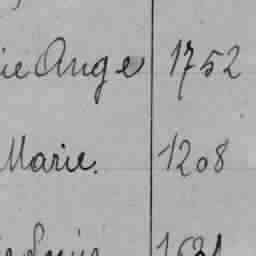 ie Ange 1752
Marie. 1208